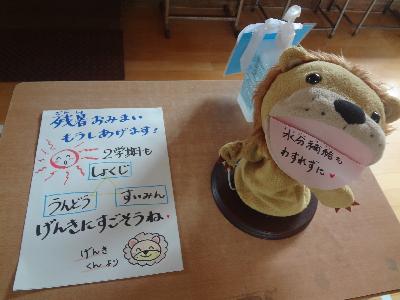 残暑おみまい
もうしあげます！
2学期も
しょくじ
うんどう
すいみん
げんきにすごそうね♥
げんき
くんより
水分補給も
わすれずに♥